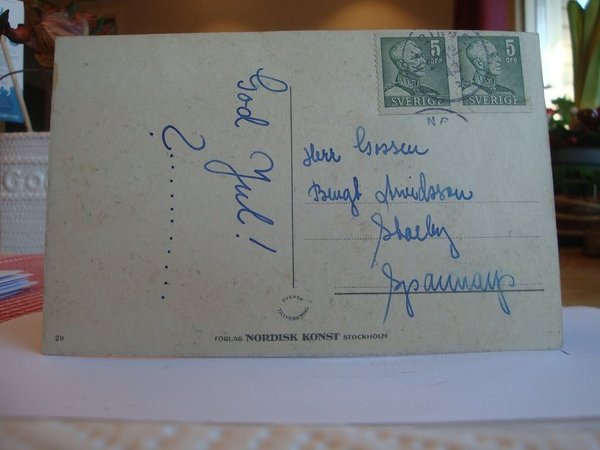 God Jul!
2.........
5
öre
SVERIGE
5
öre
SVERIGE
Herr Gossen
Bengt Arvidsson
SVENSK
TILLVERKNING
20
FÖRLAG NORDISK KONST STOCKHOLM